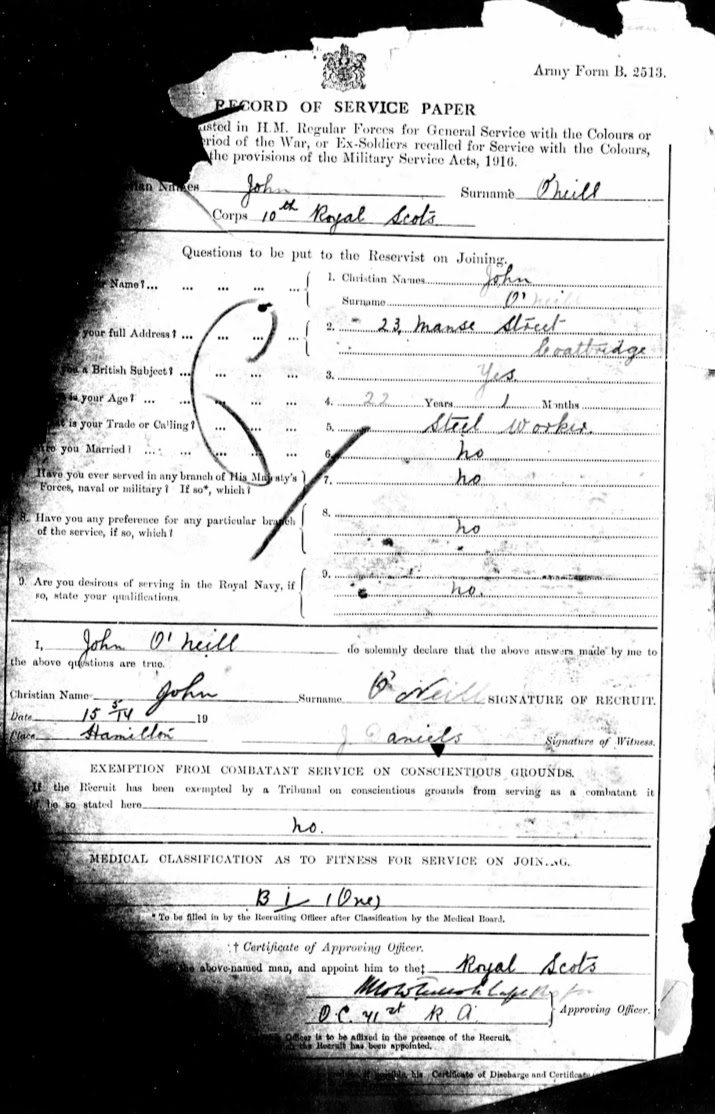 Army Form B. 2513.
RECORD OF SERVICE PAPER
in H.M. Regular Forces for General Service with the Colours or
of the War, or Ex-Soldiers recalled for Service with the Colours,
the provisions of the Military Service Acts, 1916.
Names John Surname O'Neill
Corps 10th Royal Scots
Questions to be put to the Reservist on Joining.
Name? ... ... ... ... 1. Christian Names John
Surname O'Neill
your full Address? ... ... ... ... 2. 23, Manse Street
Coatbridge
a British Subject? ... ... ... ... 3. Yes
is your Age? ... ... ... ... 4. 22 Years 1 Months
is your Trade or Calling? ... ... ... 5. Steel Worker
you Married? ... ... ... ... 6. no
Have you ever served in any branch of His Majesty's
Forces, naval or military? If so*, which? 7. no
8. Have you any preference for any particular branch
of the service, if so, which? 8. no
9. Are you desirous of serving in the Royal Navy, if
so, state your qualifications. 9. no.
I, John O'Neill do solemnly declare that the above answers made by me to
the above questions are true.
Christian Name John Surname O'Neill SIGNATURE OF RECRUIT.
Date 15 19
Place Hamilton J Daniels Signature of Witness.
EXEMPTION FROM COMBATANT SERVICE ON CONSCIENTIOUS GROUNDS.
If the Recruit has been exempted by a Tribunal on conscientious grounds from serving as a combatant it
be so stated here
no.
MEDICAL CLASSIFICATION AS TO FITNESS FOR SERVICE ON JOINING.
B i (One)
* To be filled in by the Recruiting Officer after Classification by the Medical Board.
† Certificate of Approving Officer.
above-named man, and appoint him to the‡ Royal Scots
O.C. 71st R A. Approving Officer.
Officer is to be affixed in the presence of the Recruit.
the Recruit has been appointed.
if possible, his Certificate of Discharge and Certificate